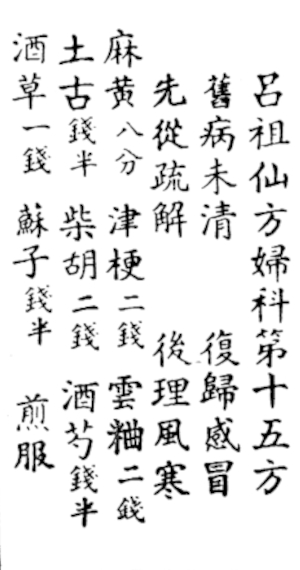 呂祖仙方婦科第十五方
舊病未清 復歸感冒
先從疏解 後理風寒
麻黃八分 津梗二錢 雲粬二錢
土古錢半 柴胡二錢 酒芍錢半
酒草一錢 蘇子錢半 煎服